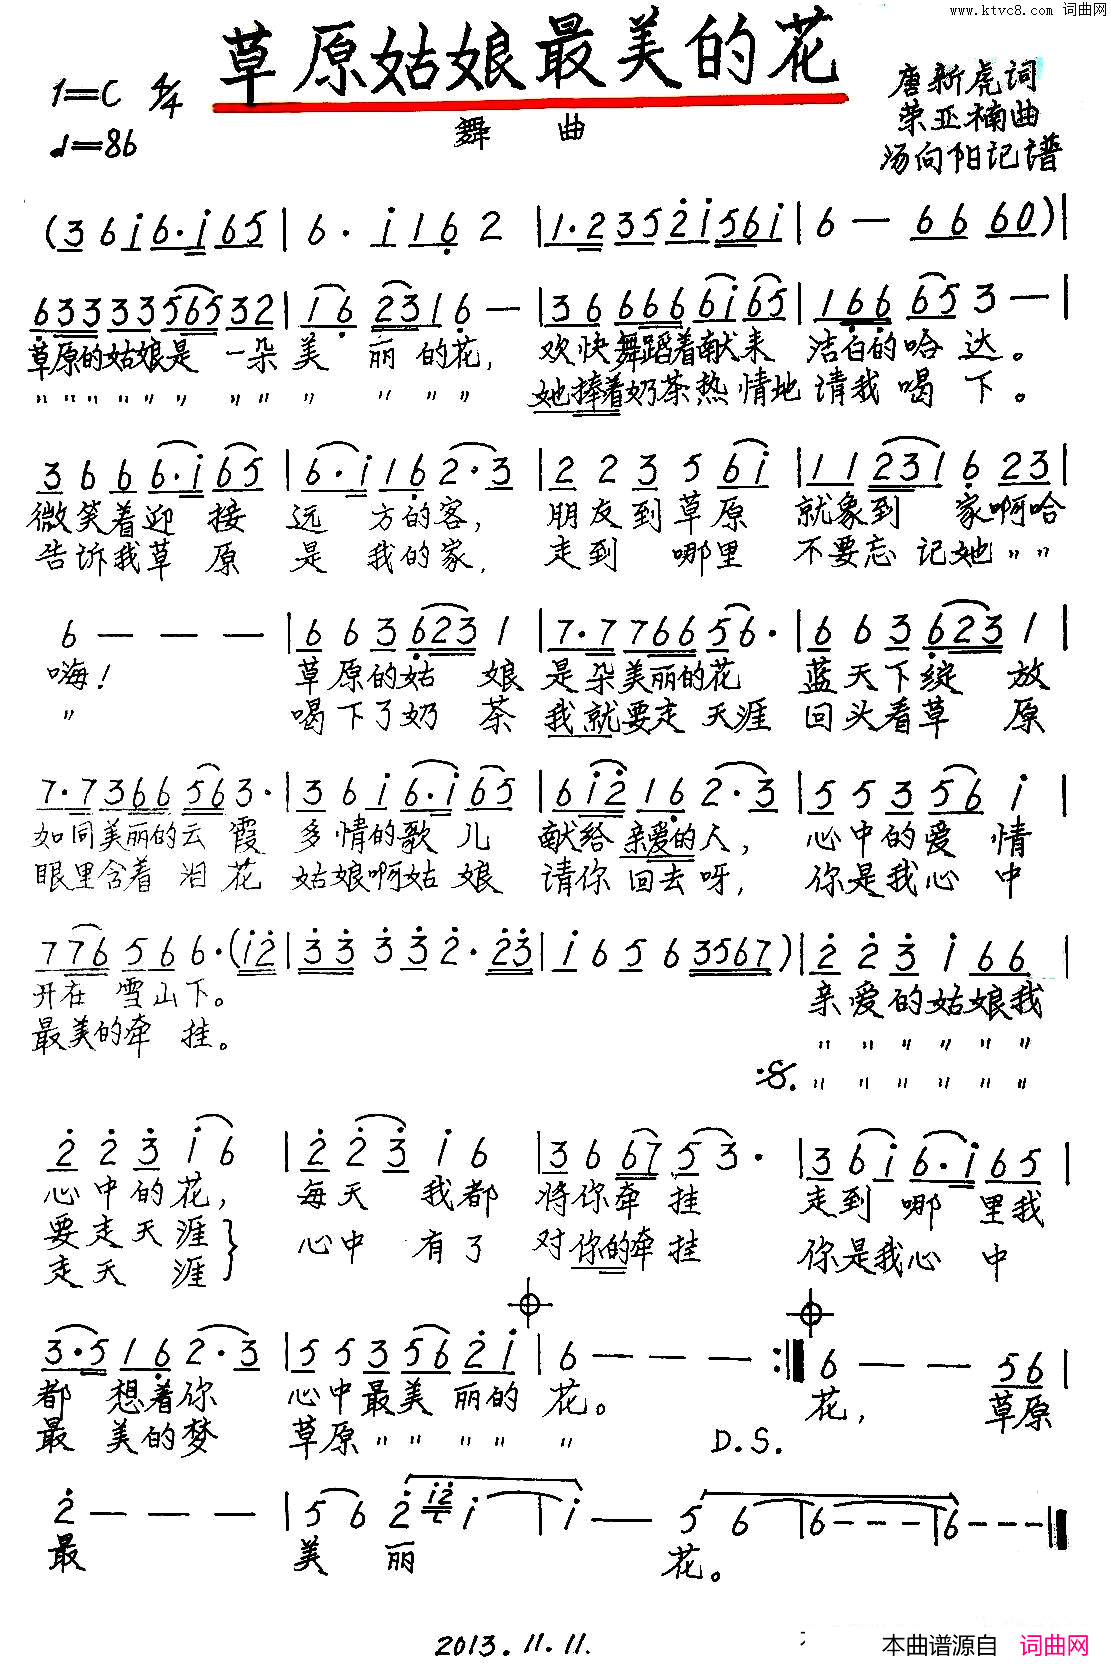 www.ktvc8.com 词曲网
草原姑娘最美的花
1=C 4/4
♩=86
舞 曲
唐新虎词
荣亚楠曲
汤向阳记谱
(3 6 i 6·i 65 | 6· i 1 6 2 | 1·2 35 2i 56i | 6 — 66 60) |
633 33 565 32 | 16 23 1 6 — | 36 666 6i 65 | 166 65 3 — |
草原的姑娘是 一朵美 丽 的花, 欢快舞蹈着献来 洁白的哈 达。
〃〃〃〃〃〃 〃〃〃 〃 〃〃 她捧着奶茶热情地 请我 喝 下。
3 6 6 6·i 65 | 6·i 16 2·3 | 2 2 3 5 6i | 11 231 6 23 |
微笑着迎 接 远 方的客, 朋友到草原 就象到 家啊哈
告诉我草 原 是 我的家, 走到 哪里 不要忘 记她〃〃
6 — — — | 6 6 3 623 1 | 7·7 766 56· | 6 6 3 623 1 |
嗨! 草原的姑 娘 是朵美丽的花 蓝天下绽 放
〃 喝下了奶 茶 我就要走天涯 回头看草 原
7·7 366 56 3· | 3 6 i 6·i 65 | 6i2 16 2·3 | 5 5 3 56 i |
如同美丽的云 霞 多情的歌 儿 献给亲爱的人, 心中的爱 情
眼里含着 泪 花 姑娘啊姑 娘 请你回去呀, 你是我心 中
7 76 5 6 6 6·(i2 | 33 3 3 2· 23 | i 6 5 6 3567) | 2 2 3 i 66 |
开在 雪山下。 亲爱的姑娘我
最美的牵 挂。 〃〃〃〃〃〃
𝄋. 〃〃〃〃〃〃
2 2 3 i 6 | 2 2 3 i 6 | 3 6 67 5 3· | 3 6 i 6·i 65 |
心中的花, 每天 我都 将你牵 挂 走到 哪 里我
要走天涯 } 心中 有了 对你的牵 挂 你是我心 中
走天 涯
3·5 16 2·3 | 5 5 3 56 2 i | 6 — — — :‖ 6 — — 56 |
都 想着你 心中最美 丽的 花。 花, 草原
最 美的梦 草原〃〃 〃〃 〃 D.S.
2 — — — | 5 6 2 i2 i | i — 5 6 | 6 - - - | 6 - - - ‖
最 美 丽 花。
2013.11.11.
本曲谱源自 词曲网